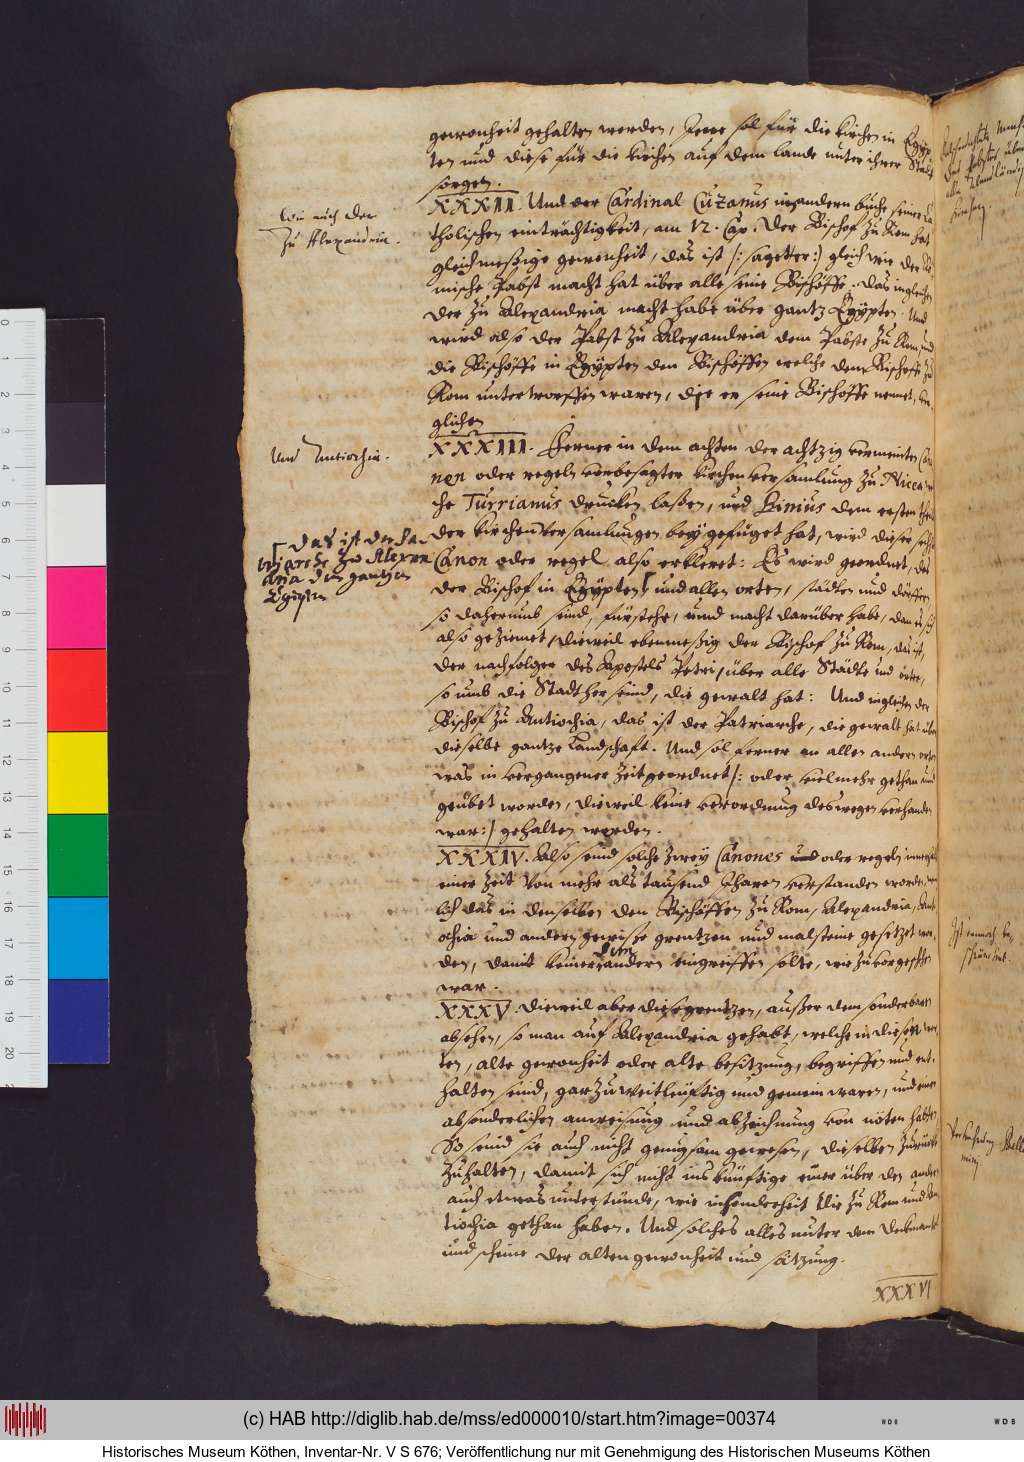 gewonheit gehalten werden, Jene sol für die kirchen in Egyp
ten und diese für die kirchen auf dem lande unter ihrer Stadt
sorgen.
Wie auch der
zu Alexandria.
XXXII. Und der Cardinal Cuzanus im andern buche seiner Ca
tholischen einträchtigkeit, am 12. Cap. Der Bischof zu Rom hat
gleichmeßige gewonheit, das ist /: saget er :/ gleich wie der Rö
mische Pabst macht hat über alle seine Bischöffe. Das ingleichen
der zu Alexandria macht habe über gantz Egypten. Und
wird also der Pabst zu Alexandria dem Pabste zu Rom, und
die Bischöffe in Egypten den Bischöffen welche dem Bischoffe zu
Rom unterworffen waren, die er seine Bischöffe nennet, ver
glichen
Und Antiochia.
XXXIII. Ferner in dem achten der achtzig vermeinten Ca
non oder regeln vorbesagter kirchenversamlung zu Nicea
che Turrianus drucken laßen, und Binius dem ersten theil
der kirchenversamlungen beygefüget hat, wird dieser sechste
Canon oder regel also erkleret: Es wird geordnet, das
der Bischof in Egypten und allen orten, städten und dörffern
das ist der Pa
triarche zu Alexan
dria den gantzen
Egypten
so daherumb seind, fürstehe, und macht darüber habe, dan es sich
also geziemet, dieweil ebenmeßig der Bischof zu Rom, das ist,
der nachfolger des Apostels Petri, über alle Städte und örter,
so umb die Stadt her seind, die gewalt hat: Und ingleichen der
Bischof zu Antiochia, das ist der Patriarche, die gewalt hat über
dieselbe gantze Landschaft. Und sol ferner an allen andern orten
was in vergangener zeit geordnet /: oder vielmehr gethan und
geübet worden, dieweil keine verordnung deswegen verhanden
war :/ gehalten werden.
XXXIV. Also seind solche zwey Canones oder regeln
einer zeit von mehr als tausend Jharen verstanden worden,
lich das in denselben den Bischöffen zu Rom, Alexandria, Anti
ochia und andern gewiße grentzen und malsteine gesetzet wor
den, damit keiner dem andern eingreiffen solte, wie zuvor geschehen
war.
XXXV. Dieweil aber diese grentzen, außer dem sonderbaren
absehen, so man auf Alexandria gehabt, welche in diesen wor
ten, alte gewonheit oder alte besitzung, begriffen und ent
halten seind, gar zu weitleüftig und gemein waren, und einer
absonderlichen anweisung und abzeichnung von nöten hatten
So seind sie auch nicht genugsam gewesen, dieselben zurücke
zuhalten, damit sich nicht ins künftige einer über den andern
auch etwas unterstünde, wie insonderheit die zu Rom und An
tiochia gethan haben. Und solches alles unter dem deckmantel
und scheine der alten gewonheit und satzung.
XXXVI
(c) HAB http://diglib.hab.de/mss/ed000010/start.htm?image=00374
Historisches Museum Köthen, Inventar-Nr. V S 676; Veröffentlichung nur mit Genehmigung des Historischen Museums Köthen